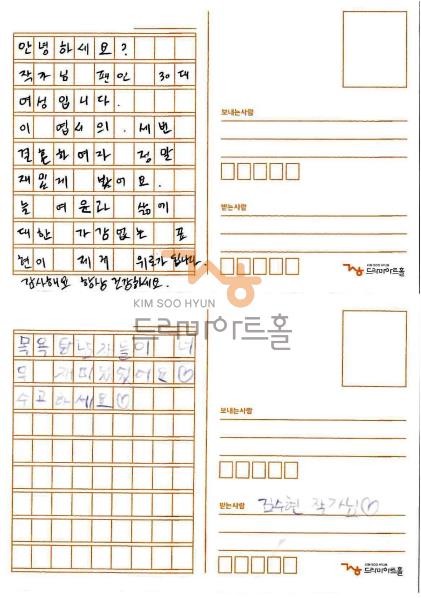 안녕하세요?
작가님 팬인 30대
여성입니다.
이 엽서의. 세번
결혼한여자 정말
재밌게 봤어요.
늘 여운과 삶에
대한 가감없는 표
현이 제게 위로가 됩니다.
감사해요 항상 건강하세요.
보내는사람
받는사람
KIM SOO HYUN
드라마아트홀
KIM SOO HYUN
드라마아트홀
목욕탕남자들이 너
무 재미있었어요♡
수고하세요♡
보내는사람
받는사람 김수현 작가님♡
KIM SOO HYUN
드라마아트홀